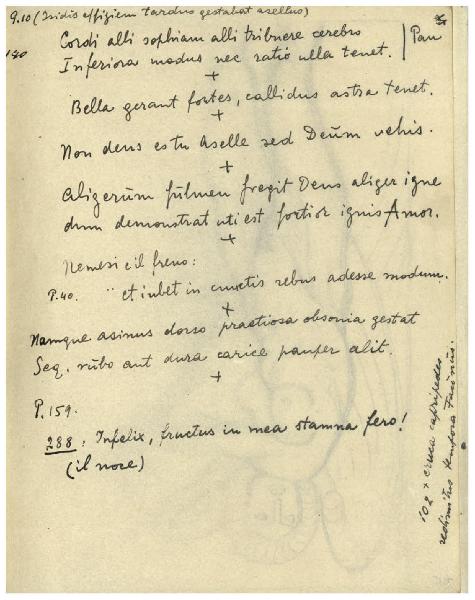 9.10 (Isidis effigiem tardus gestabat asellus)
Cordi alii sophiam alii tribuere cerebro | Pan
Inferiora modus nec ratio ulla tenet.
+
Bella gerant fortes, callidus astra tenet.
+
Non deus es tu Aselle sed Deum vehis.
+
Aligerum fulmen fregit Deus aliger igne
dum demonstrat uti est fortior ignis Amor.
+
Nemesi e il freno:
P.40. " et iubet in cunctis rebus adesse modum.
+
Namque asinus dorso praetiosa obsonia gestat
Seq. rubo aut dura carice pauper alit.
+
P.159.
288: Infelix, fructus in mea damna fero!
(il noce)
102 + cruea capripedes
redimitus tempora Faunus.